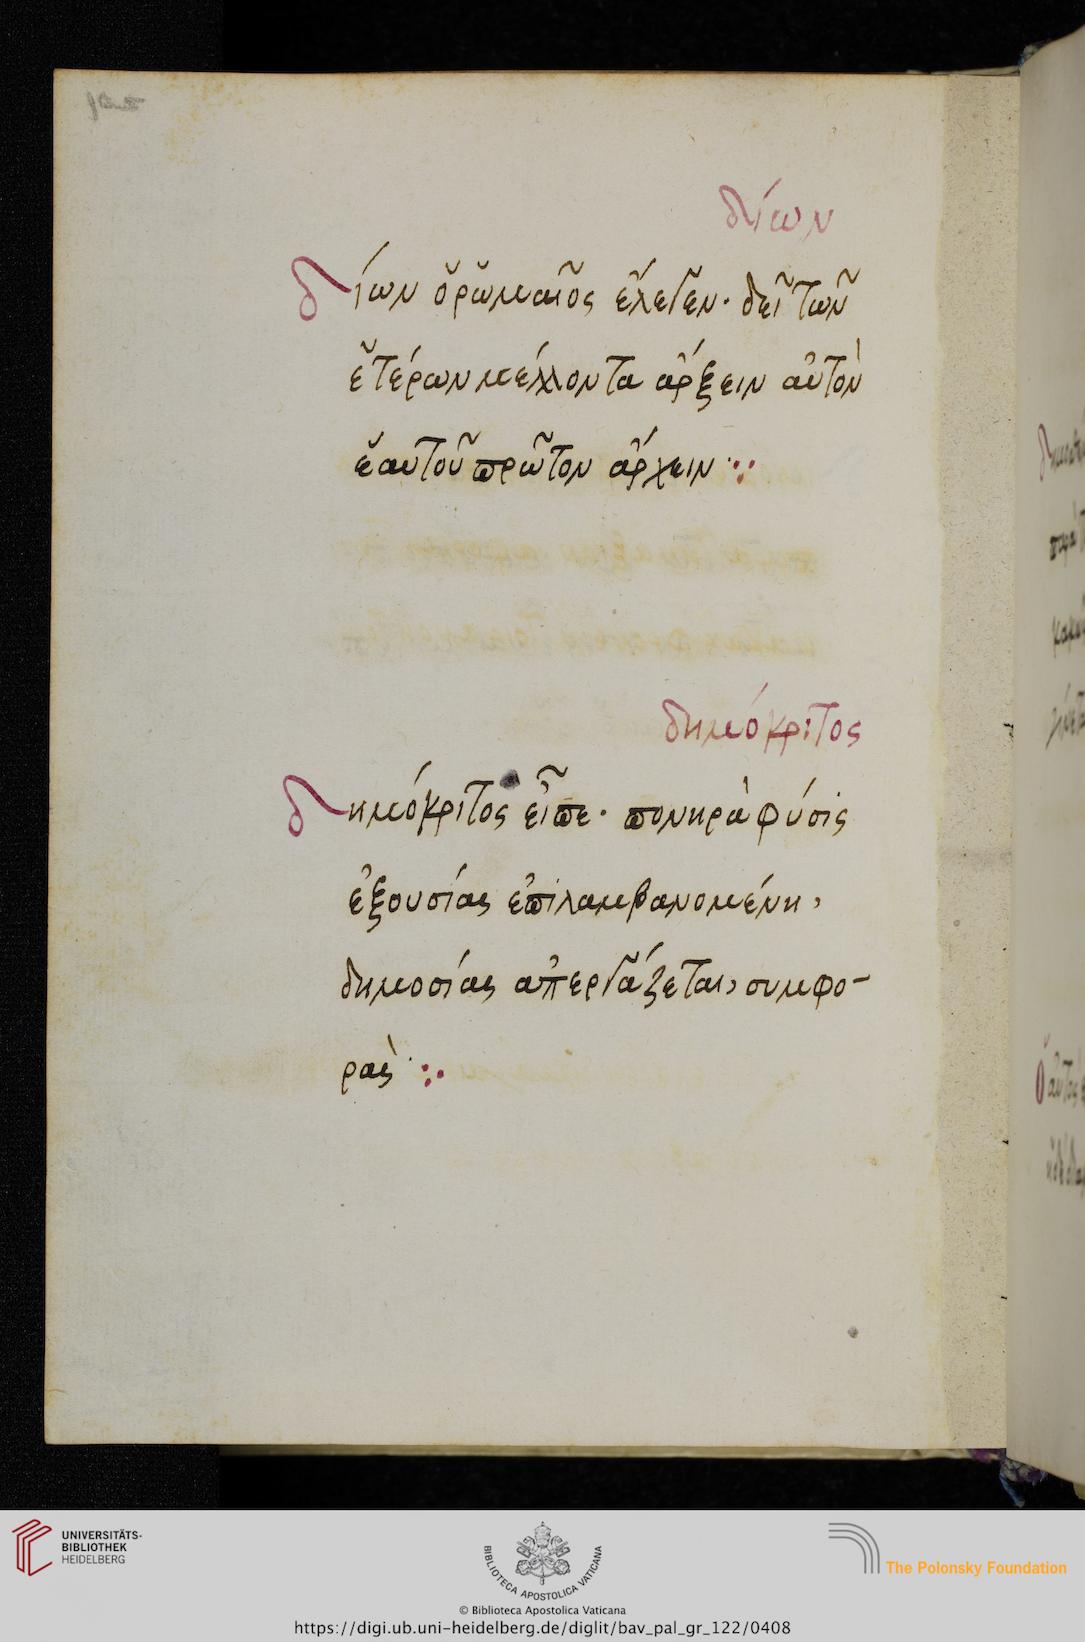 δίων
δίων ὁ ῥωμαῖος ἔλεγεν· δεῖ τῶν
ἑτέρων μέλλοντα ἄρξειν αὐτὸν
ἑαυτοῦ πρῶτον ἄρχειν ··:
δημόκριτος
δημόκριτος εἶπε· πονηρὰ φύσις
ἐξουσίας ἐπιλαμβανομένη,
δημοσίας ἀπεργάζεται, συμφο-
ράς· ·:·
UNIVERSITÄTS-
BIBLIOTHEK
HEIDELBERG
BIBLIOTECA APOSTOLICA VATICANA
The Polonsky Foundation
© Biblioteca Apostolica Vaticana
https://digi.ub.uni-heidelberg.de/diglit/bav_pal_gr_122/0408